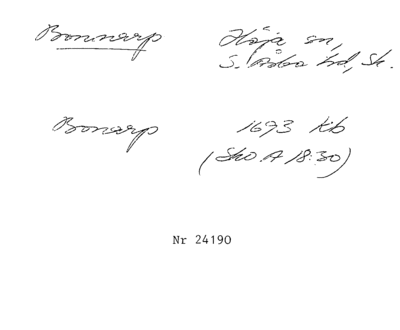 Bonnarp Höja sn,
S. Åsbo hd, Sk.
Bonarp 1693 Kb
(SkO. A 18:30)
Nr 24190